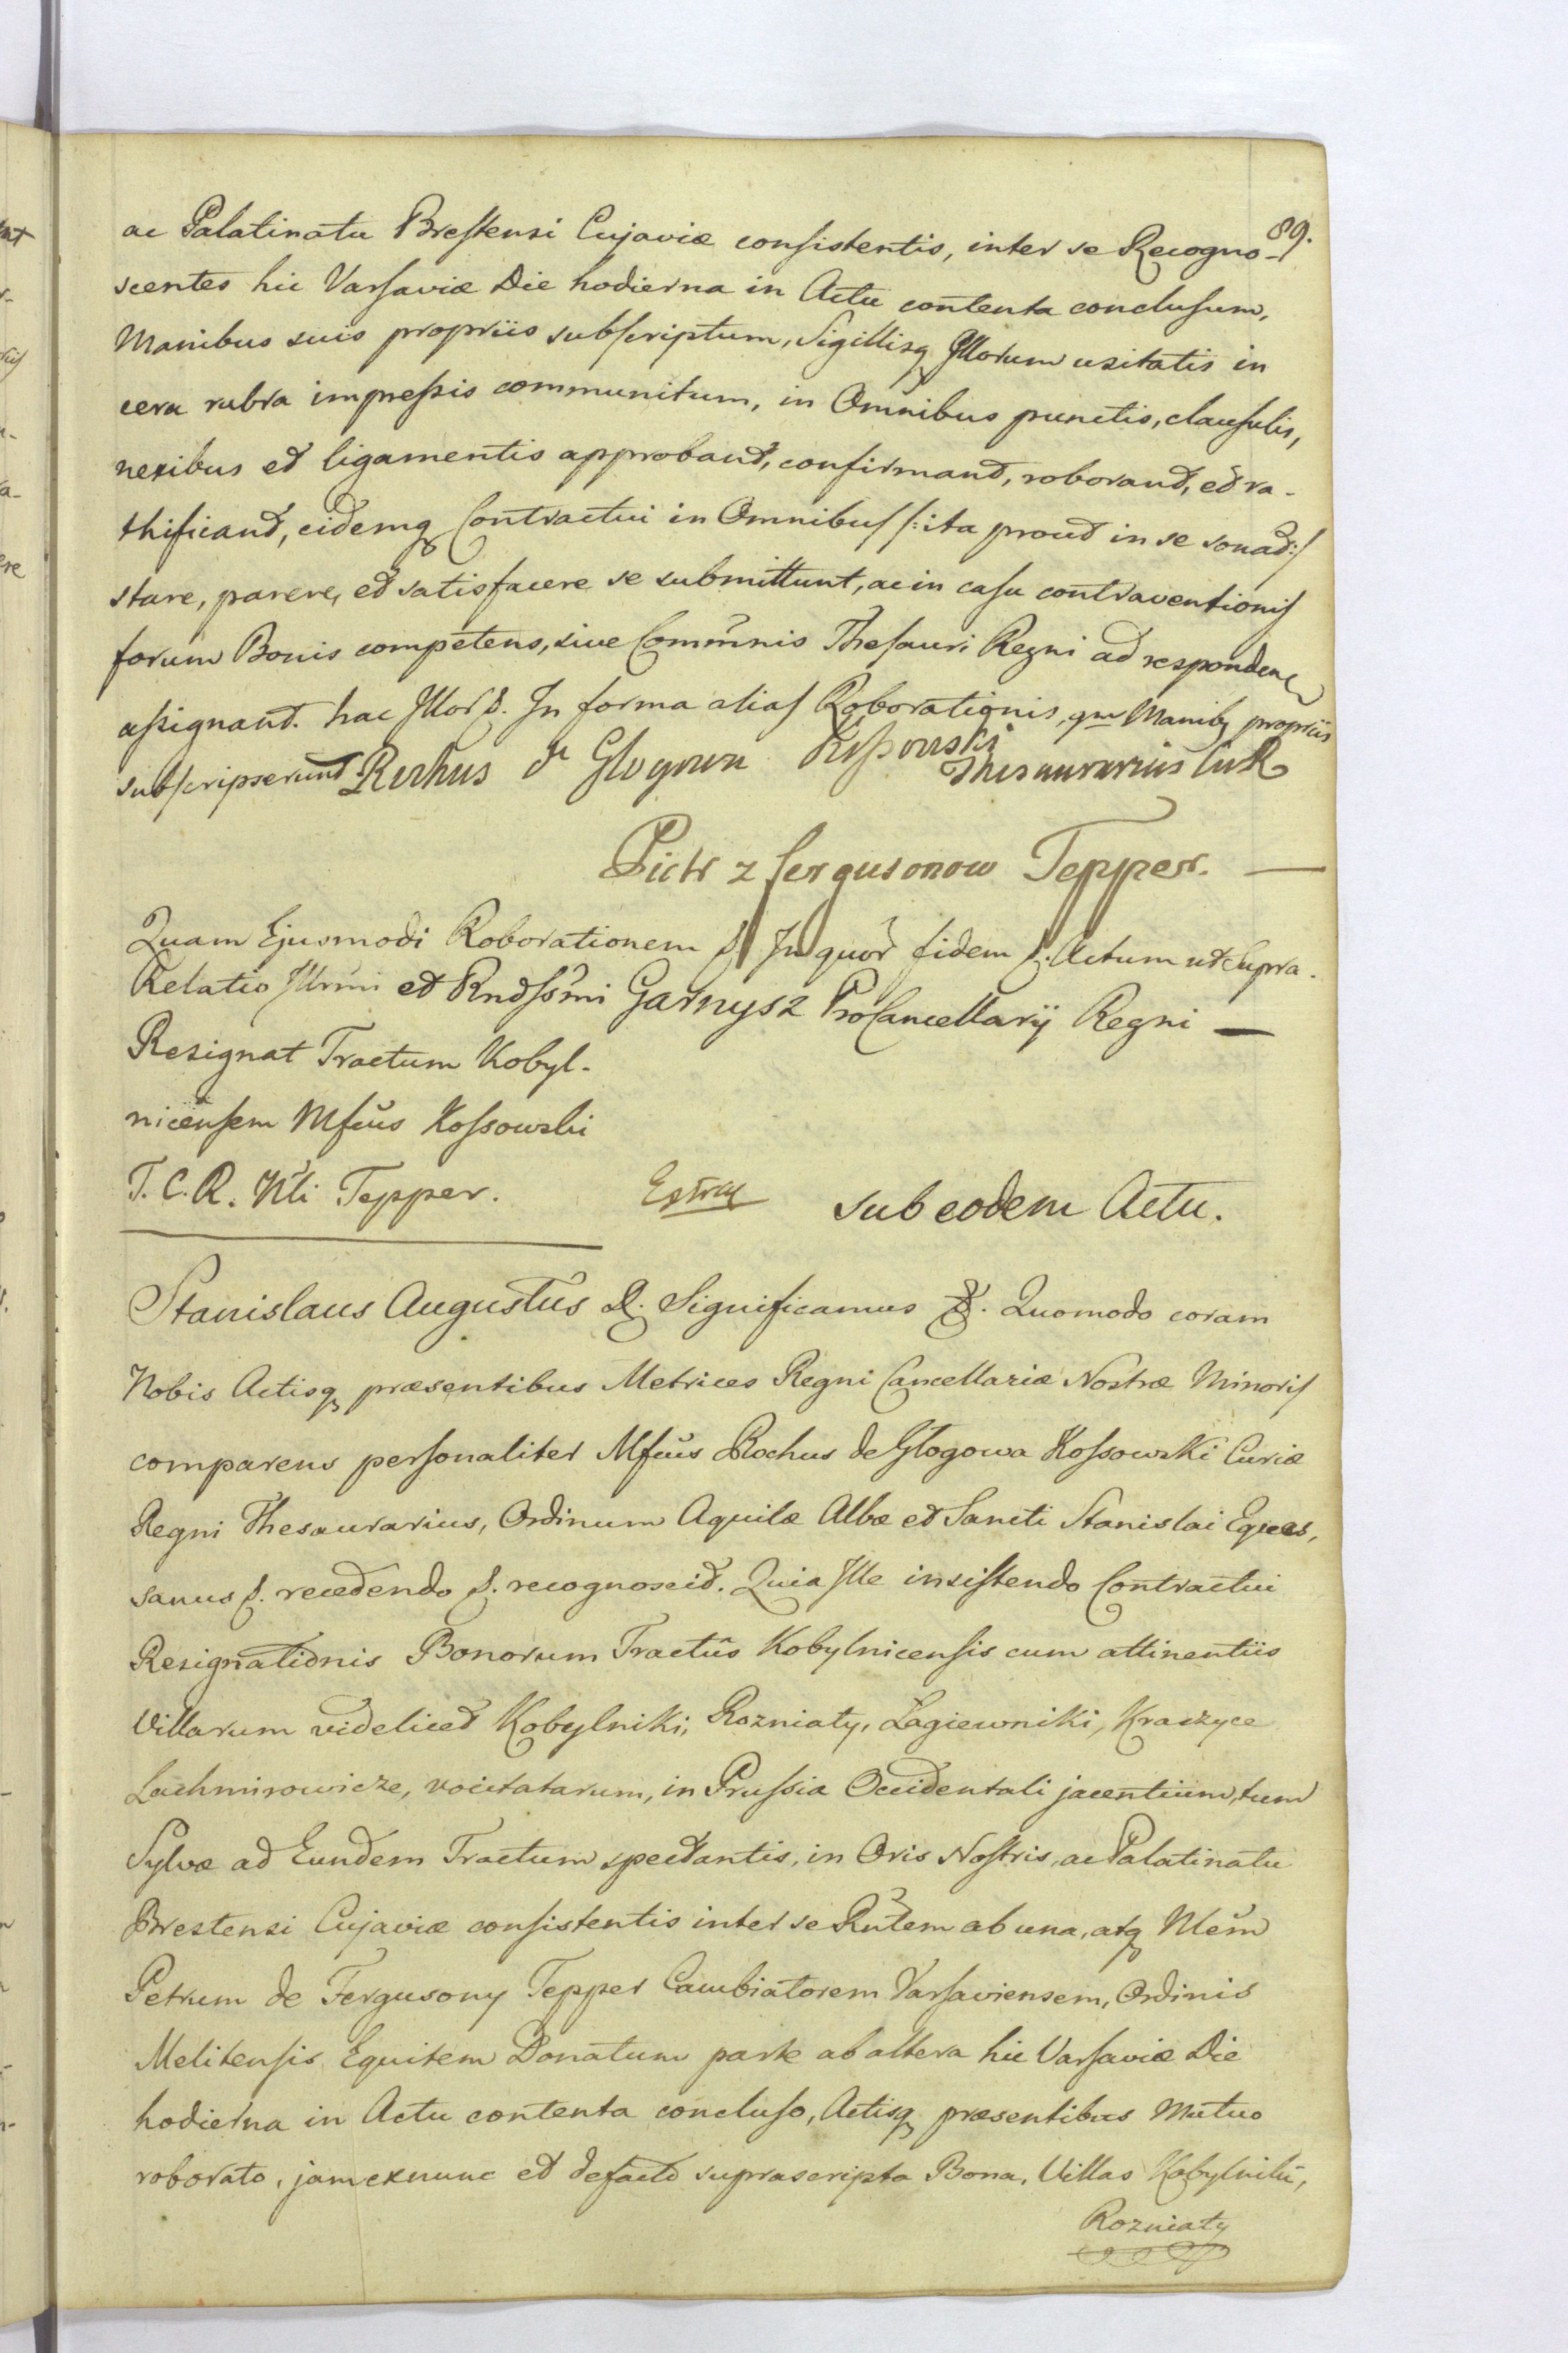 89.
ac Palatinatu Brestensi Cujaviæ consistentis, inter se Recogno-
scentes hic Varsaviæ Die hodierna in Actu contenta conclusum,
Manibus suis propriis subscriptum, Sigillisq Illorum usitatis in
cera rubra impressis communitum, in Omnibus punctis, clausulis,
nexibus et ligamentis approbant, confirmant, roborant, et ra-
thificant, eidemq Contractui in Omnibus /:ita prout in se sonat:/
stare, parere, et satisfacere se submittunt, ac in casu contraventionis
forum Bonis competens, sive Commnis Thesauri Regni ad responden
assignant. hac Illor &. In forma alias Roborationis, qm Manibq propriis
subscripserunt. Rochus de Glogowa Kossowski
Thesaurarius CuR
Piotr z fergusonow Tepper. —
Quam Ejusmodi Roborationem &. In quor fidem &. Actum ut Supra.
Relatio Illrmi et Rndssmi Garnysz ProCancellarij Regni —
Resignat Tractum Kobyl-
nicensem Mfcus Kossowski
T. C. R. Nli Tepper.
Extrad
sub eodem Actu.
Stanislaus Augustus &. Significamus &. Quomodo coram
Nobis Actisq præsentibus Metrices Regni Cancellariæ Nostræ Minoris
comparens personaliter Mfcus Rochus de Glogowa Kossowski Curiæ
Regni Thesaurarius, Ordinum Aquilæ Albæ et Sancti Stanislai Eques,
sanus &. recedendo &. recognoscit. Quia Ille insistendo Contractui
Resignationis Bonorum Tractûs Kobylnicensis cum attinentiis
Villarum videlicet Kobylniki, Rozniaty, Lagiewniki, Kraszyce
Lachmirowicze, vocitatarum, in Prussia Occidentali jacentium, tum
Sylvæ ad Eundem Tractum spectantis, in Oris Nostris, ac Palatinatu
Brestensi Cujaviæ consistentis inter se Rntem ab una, atq Nlem
Petrum de Fergusony Tepper Cambiatorem Varsaviensem, Ordinis
Melitensis Equitem Donatum parte ab altera hic Varsaviæ Die
hodierna in Actu contenta concluso, Actisq præsentibus Mutuo
roborato, jam exnunc et defacto suprascripta Bona, Villas Kobylniki,
Rozniaty